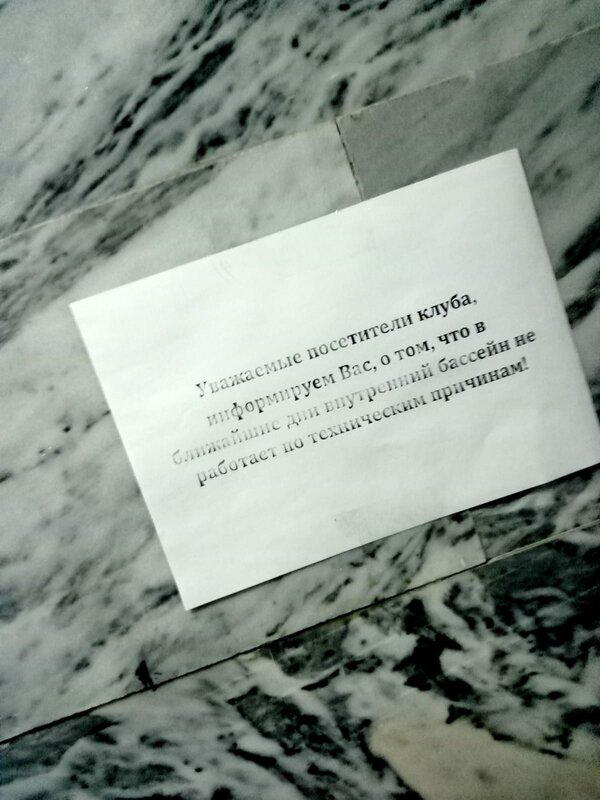 Уважаемые посетители клуба,
информируем Вас, о том, что в
ближайшие дни внутренний бассейн не
работает по техническим причинам!